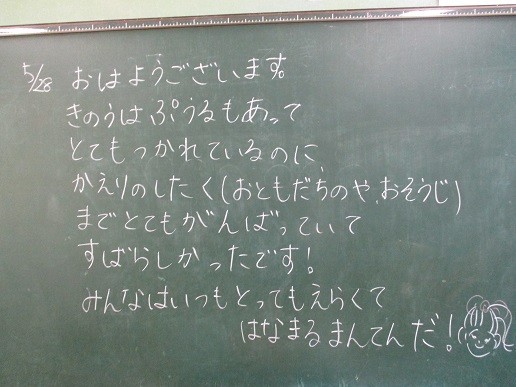 5/28 おはようございます。
きのうは ぷうるもあって
とてもつかれているのに、
かえりのしたく(おともだちのや、おそうじ)
までとてもがんばっていて
すばらしかったです!
みんなはいつもとってもえらくて
はなまるまんてんだ!